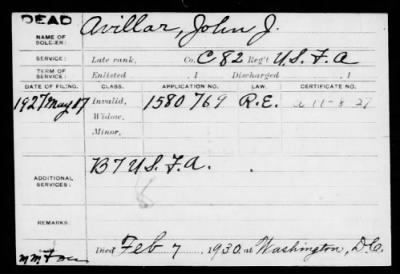 DEAD
NAME OF SOLDIER: Avillar, John J.
SERVICE: Late rank, Co. C 82 Reg't U.S.F.A
TERM OF SERVICE: Enlisted , 1 Discharged , 1
DATE OF FILING. CLASS. APPLICATION NO. LAW. CERTIFICATE NO.
1927 May 17 Invalid, 1580769 R.E. 11-8-27
Widow,
Minor,
ADDITIONAL SERVICES: B 7 U.S.F.A.
REMARKS:
Died Feb 7, 1930, at Washington, D.C.